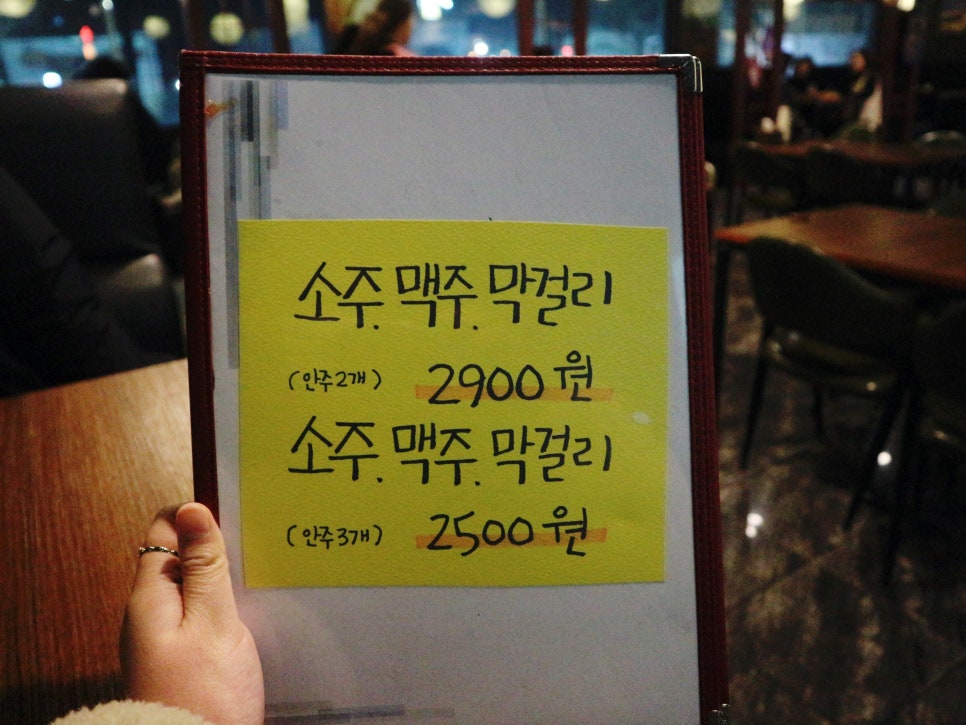 소주. 맥주. 막걸리
(안주2개) 2900원
소주. 맥주. 막걸리
(안주3개) 2500원